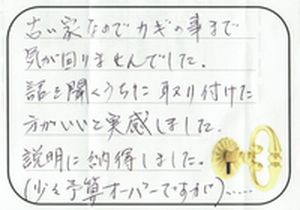 古い家なのでカギの事まで
気が回りませんでした。
話を聞くうちに取り付けた
方がいいと実感しました。
説明に納得しました。
(少々予算オーバーですが)……